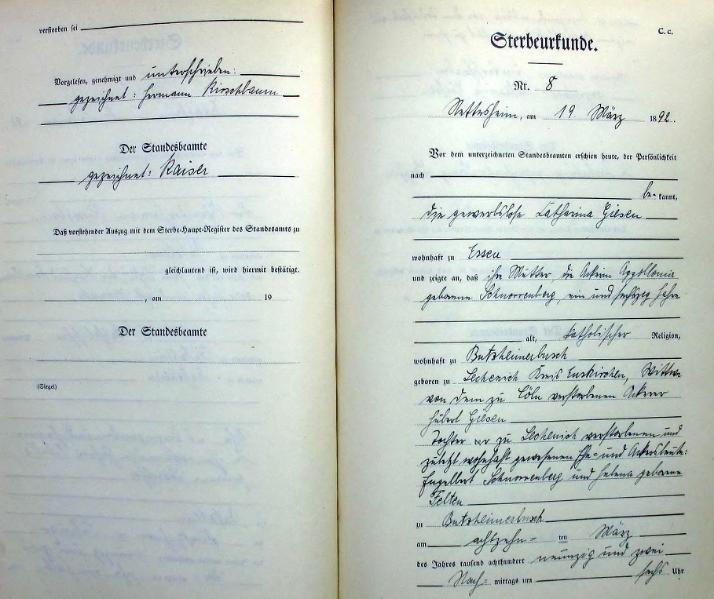 verstorben sei
Vorgelesen, genehmigt und unterschrieben:
gezeichnet: Hermann Kirschbaum
Der Standesbeamte
gezeichnet: Kaiser
Daß vorstehender Auszug mit dem Sterbe-Haupt-Register des Standesamts zu
gleichlautend ist, wird hiermit bestätigt.
, am 19
Der Standesbeamte
(Siegel)
C. c.
Sterbeurkunde.
Nr. 8
Nettesheim, am 19 März 1892.
Vor dem unterzeichneten Standesbeamten erschien heute, der Persönlichkeit
nach
be-kannt,
die gewerblose Catharina Giesen
wohnhaft zu Essen
und zeigte an, daß ihre Mutter die Appollonia
geborene Schnorrenberg, ein und sechszig Jahre
alt, katholischer Religion,
wohnhaft zu Butzheimerbusch
geboren zu Lechenich Kreis Euskirchen, Wittwe
von dem zu Cöln verstorbenen Ackerer
Hubert Giesen
Tochter der zu Lechenich verstorbenen und
zuletzt wohnhaft gewesenen Ehe- und Ackersleute:
Engelbert Schnorrenberg und Helena geborene
Felten
zu Butzheimerbusch
am achtzehn-ten März
des Jahres tausend achthundert neunzig und zwei
Nach-mittags um sechs Uhr